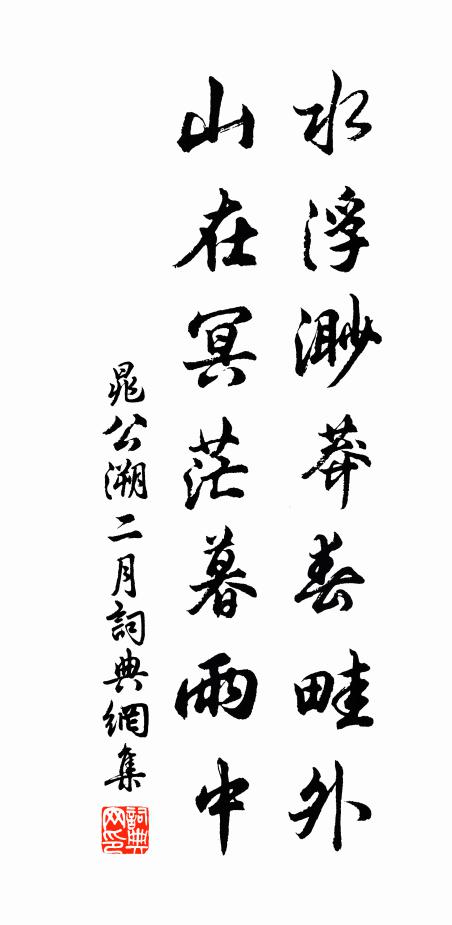 水浮渺莽春畦外
山在冥茫暮雨中
晁公溯二月詞典網集
詞典網印